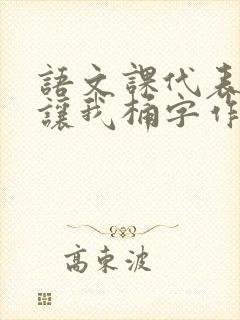 語文課代表
讓我桶字作
高東波